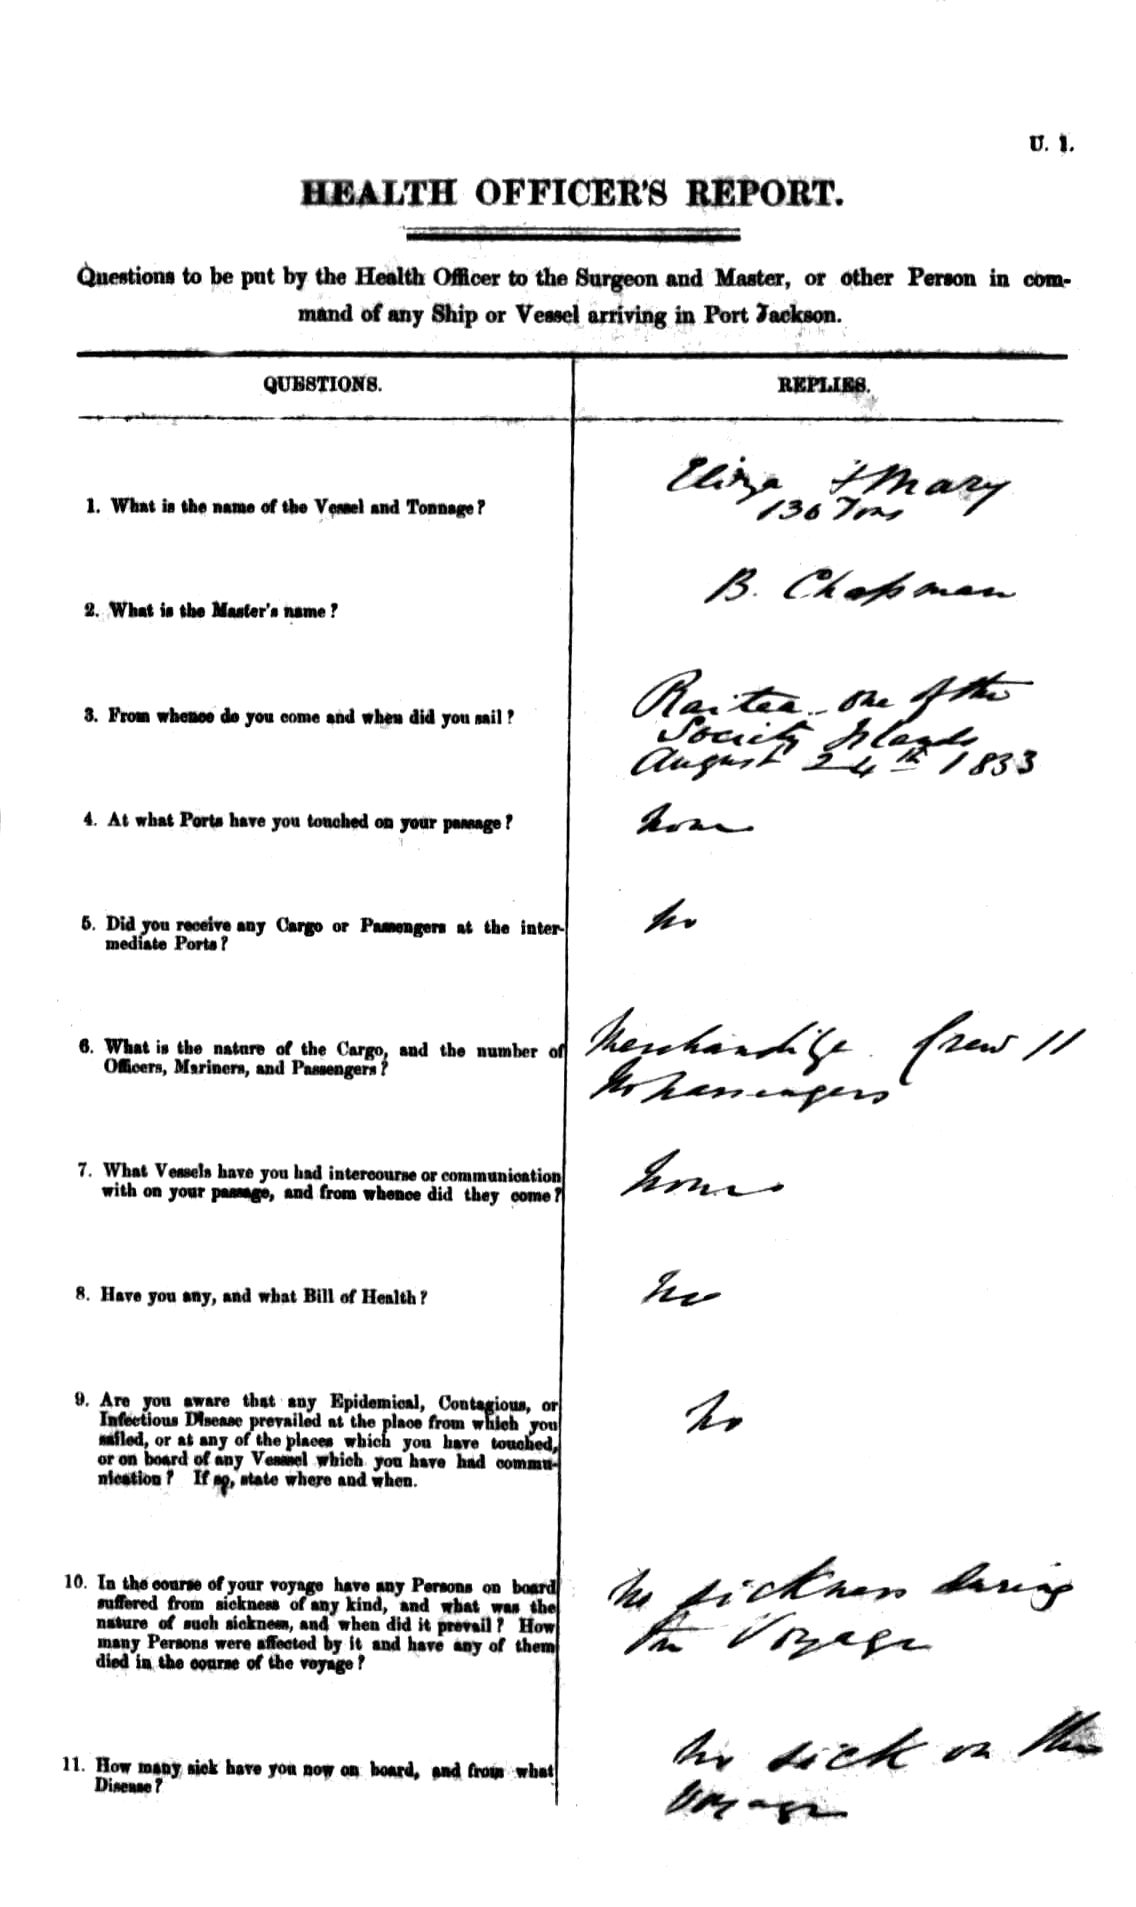 U. 1.
HEALTH OFFICER'S REPORT.
Questions to be put by the Health Officer to the Surgeon and Master, or other Person in com-
mand of any Ship or Vessel arriving in Port Jackson.
QUESTIONS.
REPLIES.
1. What is the name of the Vessel and Tonnage?
Eliza & Mary
130 Tons
2. What is the Master's name?
B. Chapman
3. From whence do you come and when did you sail?
Raitea - one of the
Society Islands
August 24th 1833
4. At what Ports have you touched on your passage?
None
5. Did you receive any Cargo or Passengers at the inter-
mediate Ports?
No
6. What is the nature of the Cargo, and the number of
Officers, Mariners, and Passengers?
Merchandize. Crew 11
No Passengers
7. What Vessels have you had intercourse or communication
with on your passage, and from whence did they come?
None
8. Have you any, and what Bill of Health?
No
9. Are you aware that any Epidemical, Contagious, or
Infectious Disease prevailed at the place from which you
sailed, or at any of the places which you have touched,
or on board of any Vessel which you have had commu-
nication? If so, state where and when.
No
10. In the course of your voyage have any Persons on board
suffered from sickness of any kind, and what was the
nature of such sickness, and when did it prevail? How
many Persons were affected by it and have any of them
died in the course of the voyage?
No sickness during
the Voyage
11. How many sick have you now on board, and from what
Disease?
No sick on the
Voyage